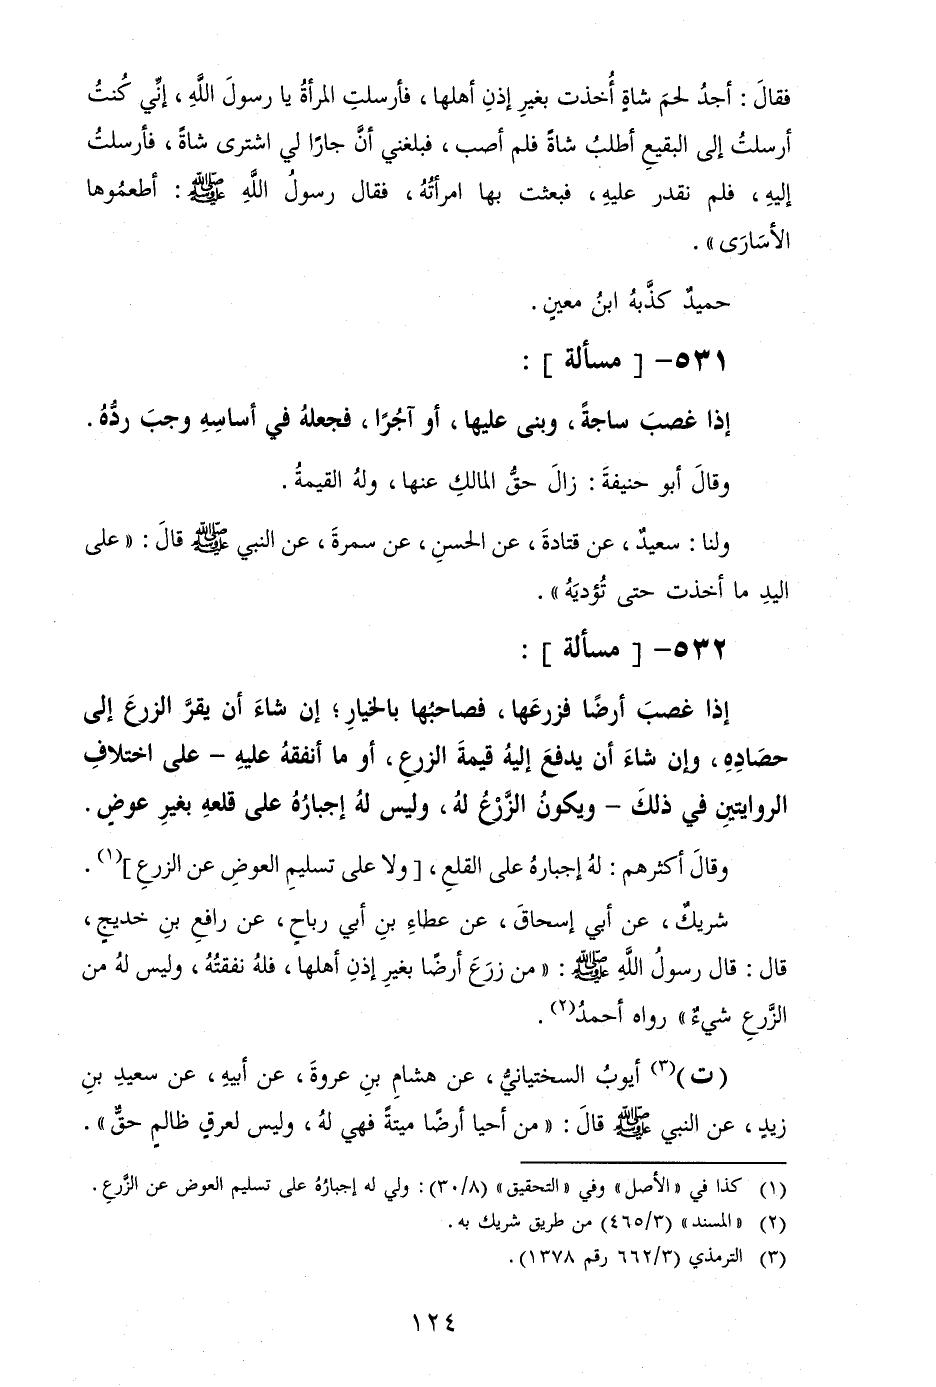 فقالَ : أجدُ لحمَ شاةٍ أُخذت بغيرِ إذنِ أهلها ، فأرسلتِ المرأةُ يا رسولَ اللَّهِ ، إنِّي كُنتُ
أرسلتُ إلى البقيعِ أطلبُ شاةً فلم أصب ، فبلغني أنَّ جارًا لي اشترى شاةً ، فأرسلتُ
إليهِ ، فلم نقدر عليهِ ، فبعثت بها امرأتُهُ ، فقال رسولُ اللَّهِ ﷺ : أطعمُوها
الأسَارَى » .
حميدٌ كذَّبهُ ابنُ معينٍ .
٥٣١- [ مسألة ] :
إذا غصبَ ساجةً ، وبنى عليها ، أو آجُرًا ، فجعلهُ في أساسِهِ وجبَ ردُّهُ .
وقالَ أبو حنيفةَ : زالَ حقُّ المالكِ عنها ، ولهُ القيمةُ .
ولنا : سعيدٌ ، عن قتادةَ ، عن الحسنِ ، عن سمرةَ ، عن النبي ﷺ قالَ : « على
اليدِ ما أخذت حتى تُؤديَهُ » .
٥٣٢- [ مسألة ] :
إذا غصبَ أرضًا فزرعَها ، فصاحبُها بالخيارِ ؛ إن شاءَ أن يقرَّ الزرعَ إلى
حصَادِهِ ، وإن شاءَ أن يدفعَ إليهُ قيمةَ الزرعِ ، أو ما أنفقهُ عليهِ – على اختلافِ
الروايتينِ في ذلكَ – ويكونُ الزَّرْعُ لهُ ، وليس لهُ إجبارُهُ على قلعهِ بغيرِ عوضٍ .
وقالَ أكثرهم : لهُ إجبارهُ على القلعِ ، [ ولا على تسليمِ العوضِ عن الزرعِ ](١) .
شريكٌ ، عن أبي إسحاقَ ، عن عطاءِ بنِ أبي رباحٍ ، عن رافعِ بنِ خديجٍ ،
قال : قال رسولُ اللَّهِ ﷺ : « من زرَعَ أرضًا بغيرِ إذنِ أهلها ، فلهُ نفقتُهُ ، وليس لهُ من
الزَّرعِ شيءٌ » رواه أحمدُ(٢) .
(ت)(٣) أيوبُ السختيانيُّ ، عن هشامِ بنِ عروةَ ، عن أبيهِ ، عن سعيدِ بنِ
زيدٍ ، عن النبي ﷺ قالَ : « من أحيا أرضًا ميتةً فهي لهُ ، وليس لعرقٍ ظالمٍ حقٌّ » .
(١) كذا في «الأصل» وفي «التحقيق» (٣٠/٨): ولي له إجبارُهُ على تسليم العوض عن الزَّرعِ .
(٢) «المسند» (٤٦٥/٣) من طريق شريك به .
(٣) الترمذي (٦٦٢/٣ رقم ١٣٧٨) .
١٢٤